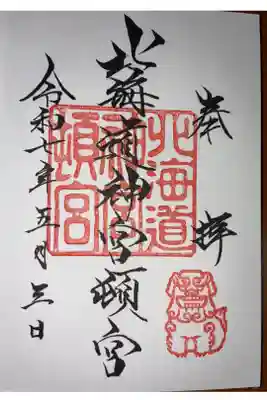 奉拝
北海道神宮頓宮
令和七年五月三日
北海道
神宮
頓宮